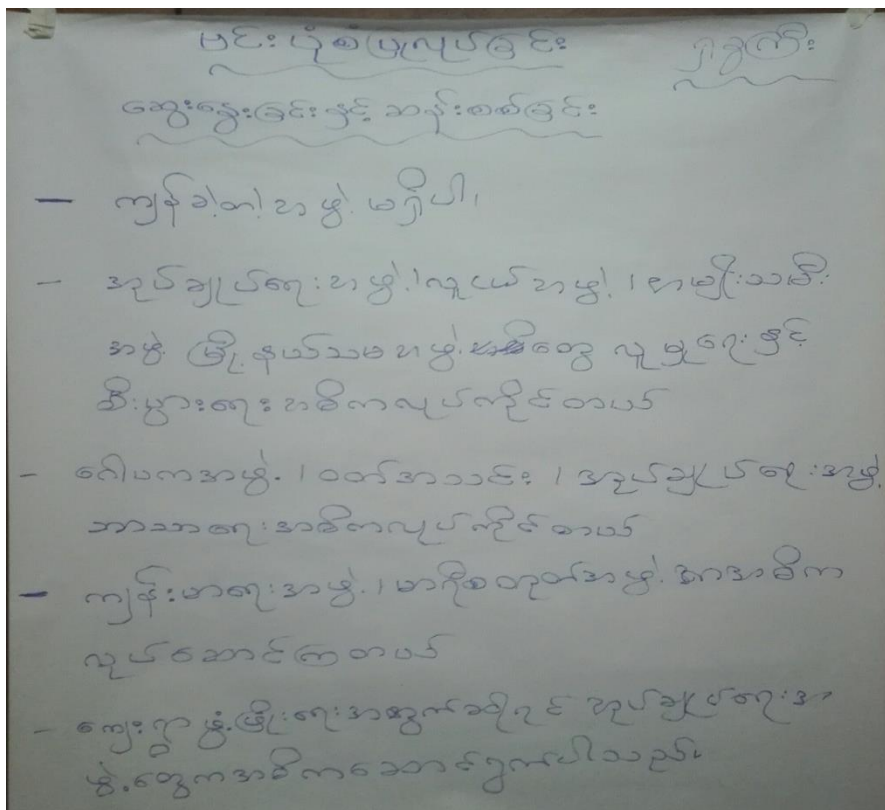 ဗင်းပုံစံပြုလုပ်ခြင်း ရှားခွကြီး
ဆွေးနွေးခြင်းနှင့် ဆန်းစစ်ခြင်း
— ကျန်ခဲ့တဲ့အဖွဲ့ မရှိပါ၊
– အုပ်ချုပ်ရေးအဖွဲ့၊ လူငယ်အဖွဲ့ ၊ အမျိုးသမီး
အဖွဲ့ မြို့နယ်သမအဖွဲ့ တွေ လူမှုရေးနှင့်
စီးပွားရေးအဓိကလုပ်ကိုင်တယ်
– ဂေါပကအဖွဲ့ ၊ ဝတ်အသင်း ၊ အုပ်ချုပ်ရေးအဖွဲ့
ဘာသာရေးအဓိကလုပ်ကိုင်တယ်
– ကျန်းမာရေးအဖွဲ့ ၊ အဖွဲ့ အဓိက
လုပ်ဆောင်ကြတယ်
– ကျေးရွာဖွံ့ဖြိုးရေးအတွက်ဆိုရင် အုပ်ချုပ်ရေးအ
ဖွဲ့တွေကအဓိကဆောင်ရွက်ပါသည်။